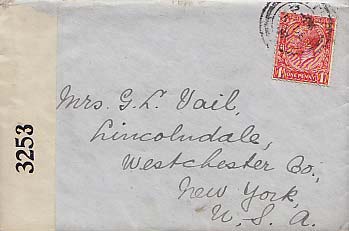 Mrs. G. L. Vail,
Lincolndale,
Westchester Co.,
New York,
U. S. A.
3253
1 ONE PENNY 1